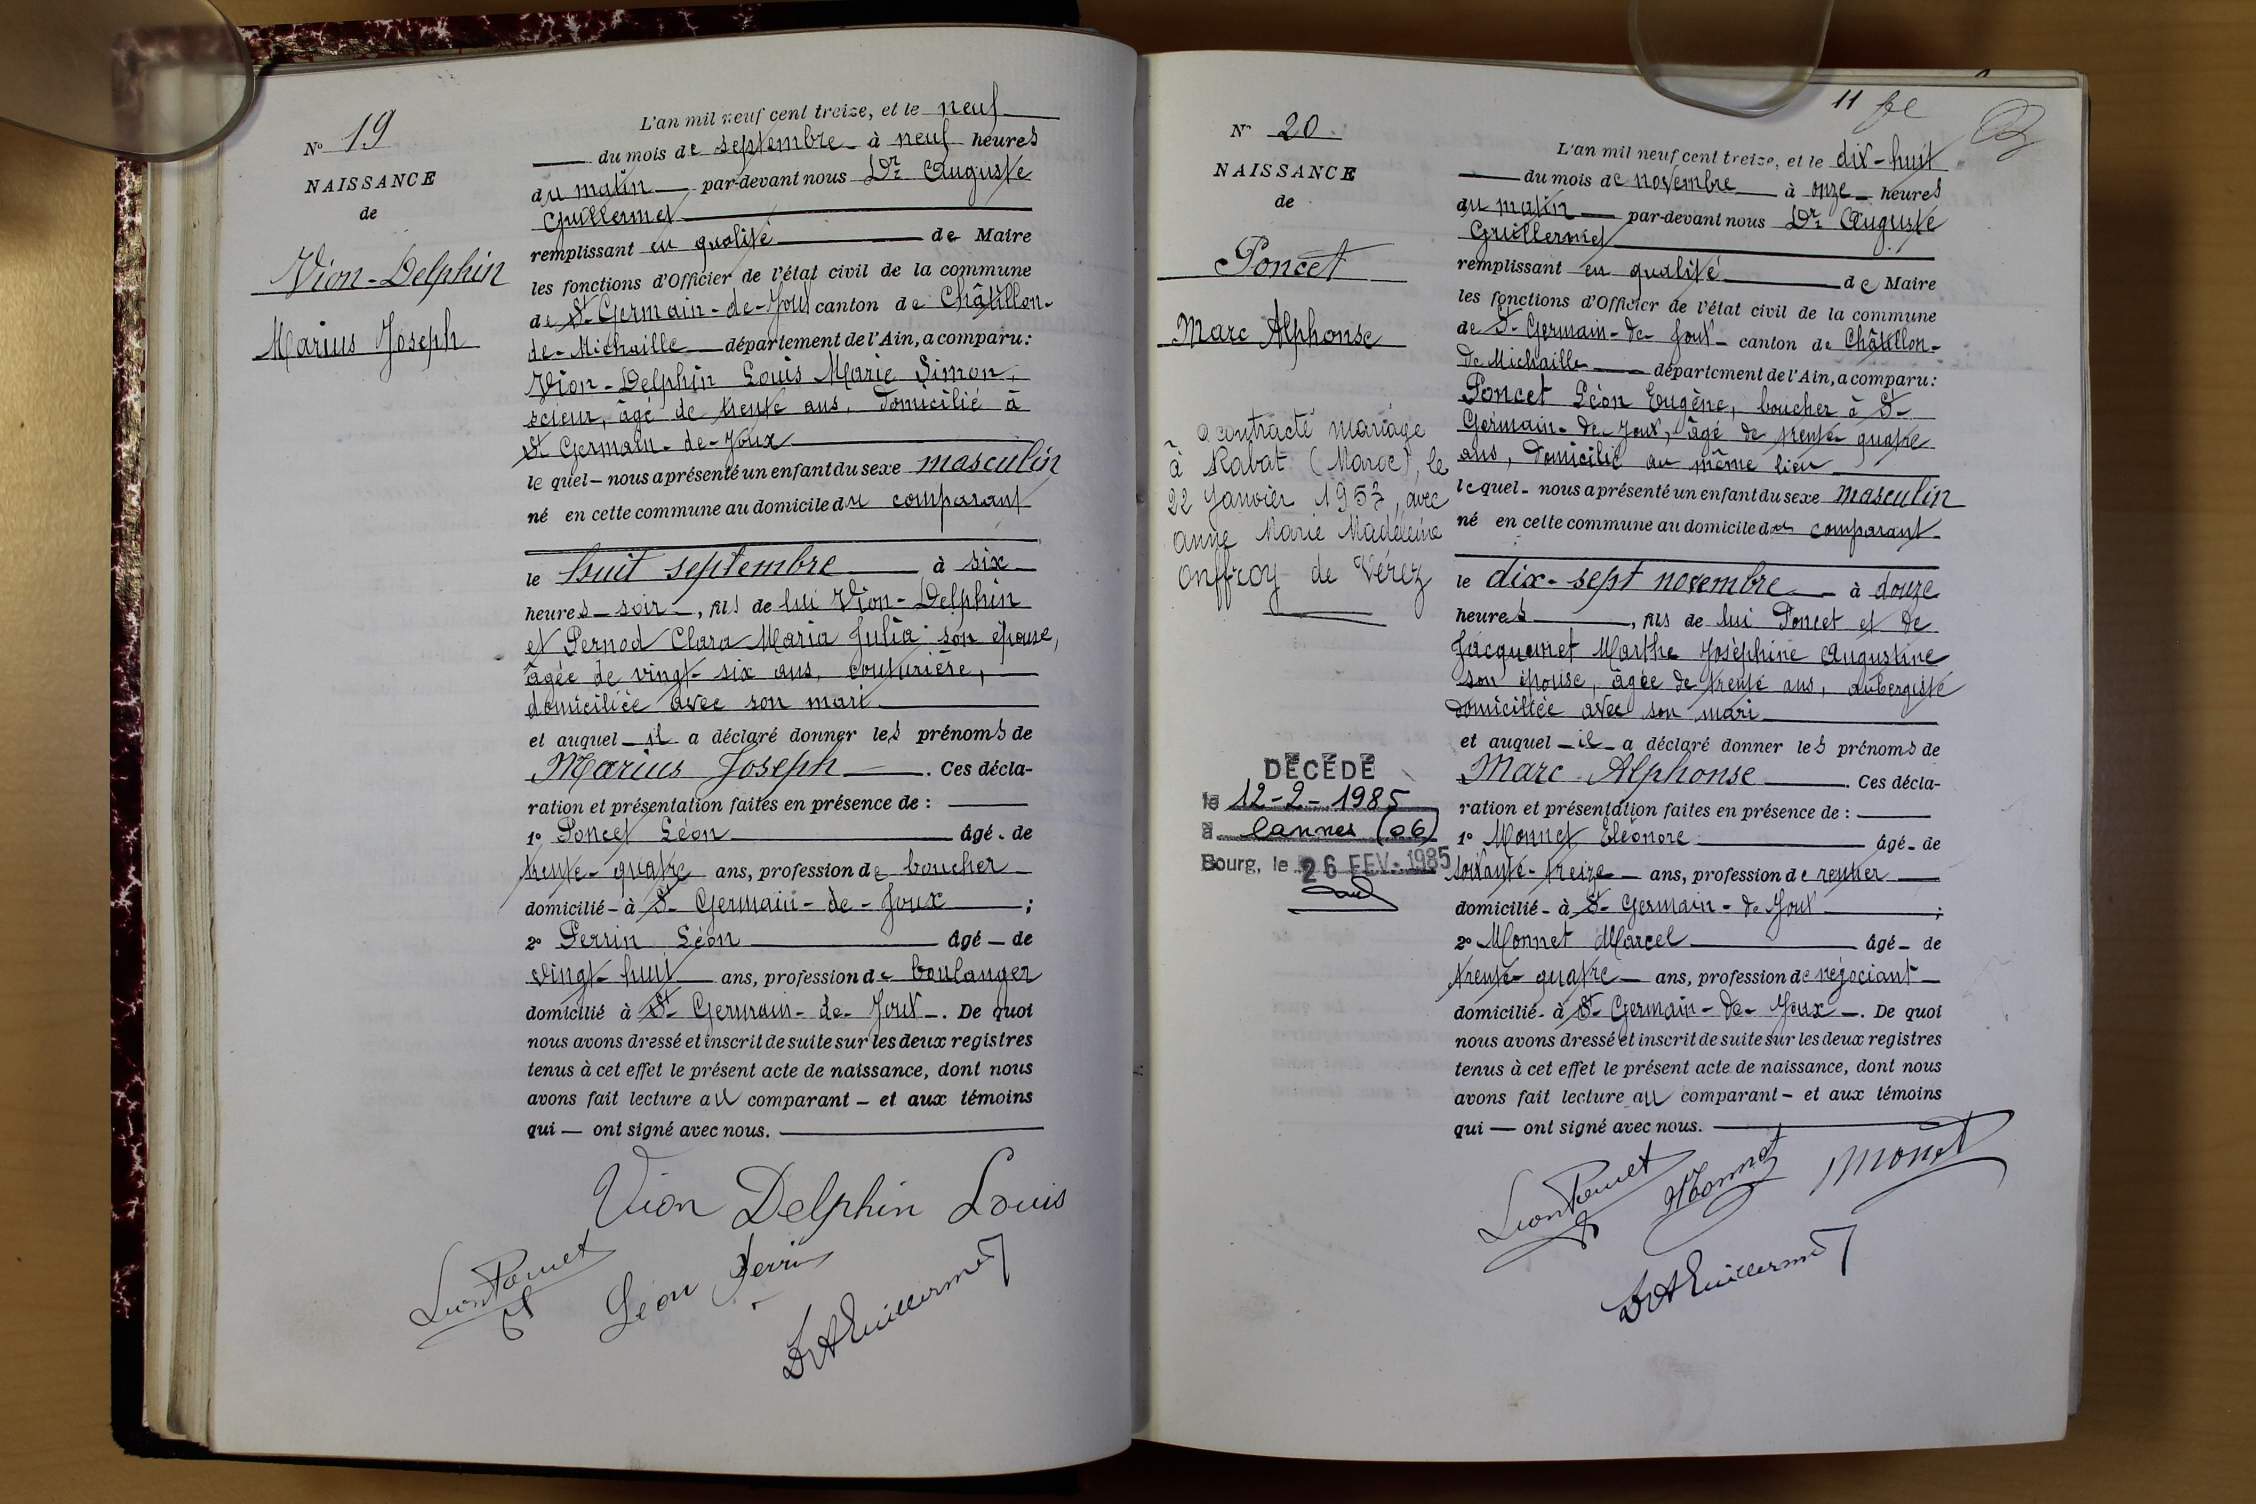 N° 19
NAISSANCE
de
Vion-Delphin
Marius Joseph
L'an mil neuf cent treize, et le neuf
du mois de septembre à neuf heures
du matin par-devant nous Dr Auguste
Guillermet
remplissant en qualité de Maire
les fonctions d'Officier de l'état civil de la commune
de St-Germain-de-Joux canton de Châtillon-
de-Michaille département de l'Ain, a comparu:
Vion-Delphin Louis Marie Simon,
scieur, âgé de trente ans, domicilié à
St Germain-de-Joux
le quel nous a présenté un enfant du sexe masculin
né en cette commune au domicile du comparant
le huit septembre à six
heures soir, fils de lui Vion-Delphin
et Pernod Clara Maria Julia son épouse,
âgée de vingt-six ans, couturière,
domiciliée avec son mari
et auquel il a déclaré donner les prénoms de
Marius Joseph. Ces décla-
ration et présentation faites en présence de :
1° Poncet Léon âgé de
trente-quatre ans, profession de boucher
domicilié à St-Germain-de-Joux ;
2° Perrin Léon âgé de
vingt-huit ans, profession de boulanger
domicilié à St-Germain-de-Joux. De quoi
nous avons dressé et inscrit de suite sur les deux registres
tenus à cet effet le présent acte de naissance, dont nous
avons fait lecture au comparant et aux témoins
qui ont signé avec nous.
Vion Delphin Louis
Léon Poncet
Léon Perrin
Dr A Guillermet
11
N° 20
NAISSANCE
de
Poncet
Marc Alphonse
a contracté mariage
à Rabat (Maroc), le
22 Janvier 1957, avec
Anne Marie Madeleine
Onffroy de Vérez
DÉCÉDÉ
le 12-2-1985
à Cannes (06)
Bourg, le 26 FEV. 1985
L'an mil neuf cent treize, et le dix-huit
du mois de novembre à onze heures
du matin par-devant nous Dr Auguste
Guillermet
remplissant en qualité de Maire
les fonctions d'Officier de l'état civil de la commune
de St-Germain-de-Joux canton de Châtillon-
de Michaille département de l'Ain, a comparu:
Poncet Léon Eugène, boucher à St-
Germain-de-Joux, âgé de trente quatre
ans, domicilié au même lieu
le quel nous a présenté un enfant du sexe masculin
né en cette commune au domicile du comparant
le dix-sept novembre à douze
heures, fils de lui Poncet et de
Jacquemet Marthe Joséphine Augustine
son épouse, âgée de trente ans, aubergiste
domiciliée avec son mari
et auquel il a déclaré donner les prénoms de
Marc Alphonse. Ces décla-
ration et présentation faites en présence de :
1° Monnet Eléonore âgé de
soixante-treize ans, profession de rentier
domicilié à St-Germain-de Joux ;
2° Monnet Marcel âgé de
trente-quatre ans, profession de négociant
domicilié à St-Germain-de-Joux. De quoi
nous avons dressé et inscrit de suite sur les deux registres
tenus à cet effet le présent acte de naissance, dont nous
avons fait lecture au comparant et aux témoins
qui ont signé avec nous.
Léon Poncet
Monnet
Monnet
Dr A Guillermet